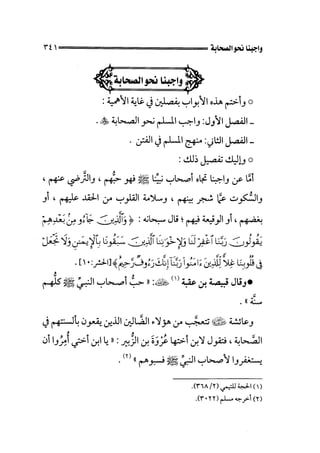 واجبنا نحو الصحابة ٣٤١
واجبنا نحو الصحابة
○ وأختم هذه الأبواب بفصلين في غاية الأهمية :
ـ الفصل الأول: واجب المسلم نحو الصحابة ﷺ .
ـ الفصل الثاني: منهج المسلم في الفتن .
○ وإليك تفصيل ذلك :
أمَّا عن واجبنا تجاه أصحاب نبيِّنا ﷺ فهو حبُّهم ، والتَّرضي عنهم ،
والسُّكوت عمَّا شجر بينهم ، وسلامة القلوب من الحقد عليهم ، أو
بغضهم ، أو الوقيعة فيهم ؛ قال سبحانه : ﴿ وَالَّذِينَ جَاءُو مِنْ بَعْدِهِمْ
يَقُولُونَ رَبَّنَا اغْفِرْ لَنَا وَلِإِخْوَانِنَا الَّذِينَ سَبَقُونَا بِالْإِيمَانِ وَلَا تَجْعَلْ
فِي قُلُوبِنَا غِلًّا لِلَّذِينَ ءَامَنُوا رَبَّنَا إِنَّكَ رَءُوفٌ رَحِيمٌ ﴾ [الحشر: ١٠] .
● وقال قبيصة بن عقبة (١) : « حبُّ أصحاب النبيِّ ﷺ كلِّهم
سنَّة » .
وعائشة تتعجَّب من هؤلاء الضَّالين الذين يقعون بألسنتهم في
الصَّحابة ، فتقول لابن أختها عُرْوَة بن الزُّبير : « يا ابن أختي أُمِرُوا أن
يستغفروا لأصحاب النبيِّ ﷺ فسبوهم » (٢) .
(١) الحجة للتيمي (٢/ ٣٦٨).
(٢) أخرجه مسلم (٣٠٢٢).